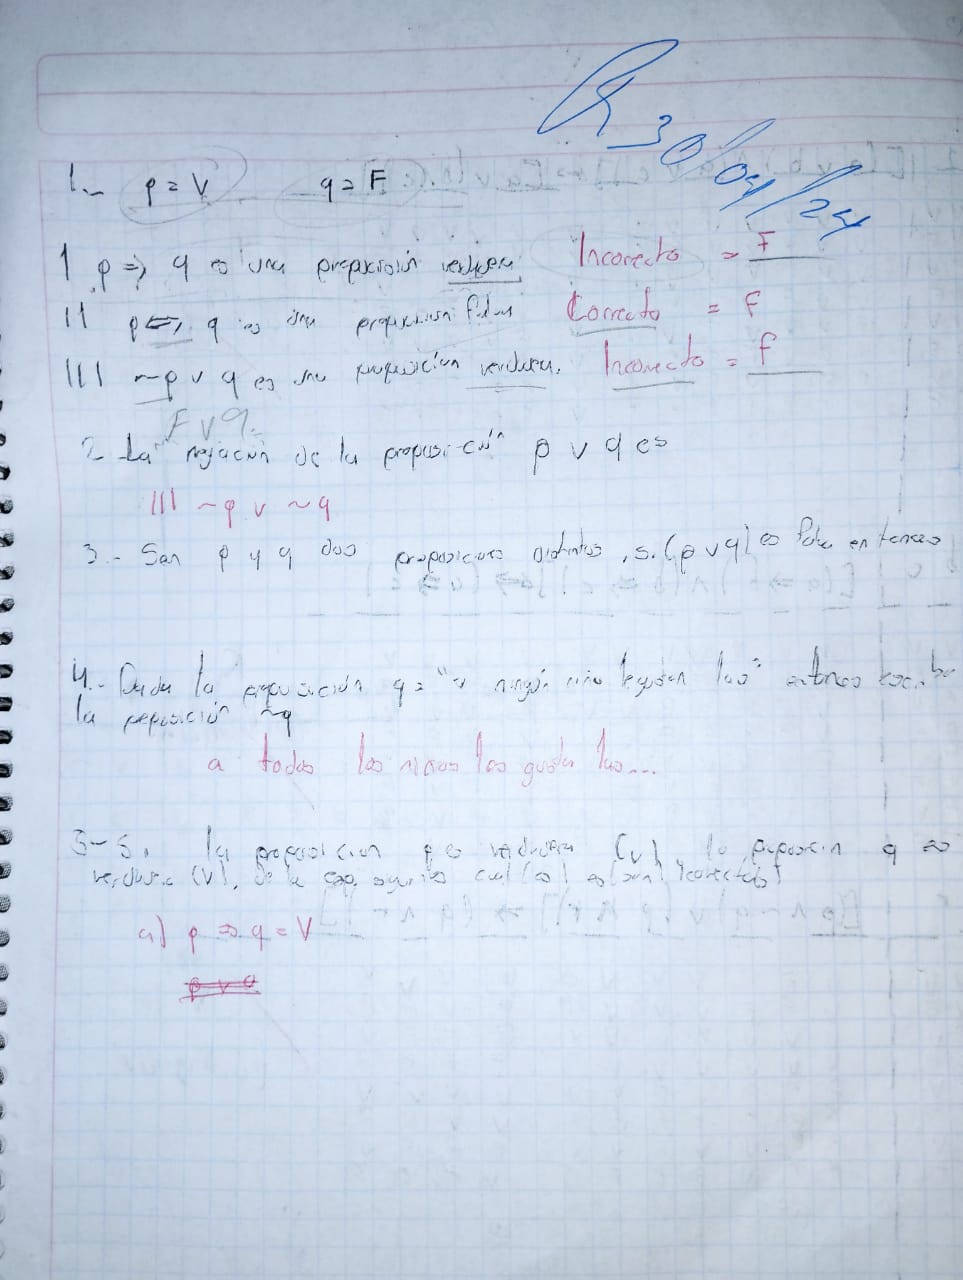 30/04/24
1.- p = V q = F
I p ⇒ q es una proposición verdadera Incorrecto = F
II p ⇔ q es una proposición falsa Correcto = F
III ~p v q es una proposición verdadera. Incorrecto = F
F v q.
2.- La negación de la proposición p v q es
III ~p v ~q
3.- San p y q dos proposiciones distintas, si (p v q) es falsa entonces
4.- Dada la proposición q = "a ningún niño le gustan las" entonces escriba
la proposición ~q
a todos los niños les gustan las...
5.- Si la proposición p es verdadera (V) y la proposición q es
verdadera (V), de la cual(es) es(son) correcta(s)
a) p ⇒ q = V
p v q